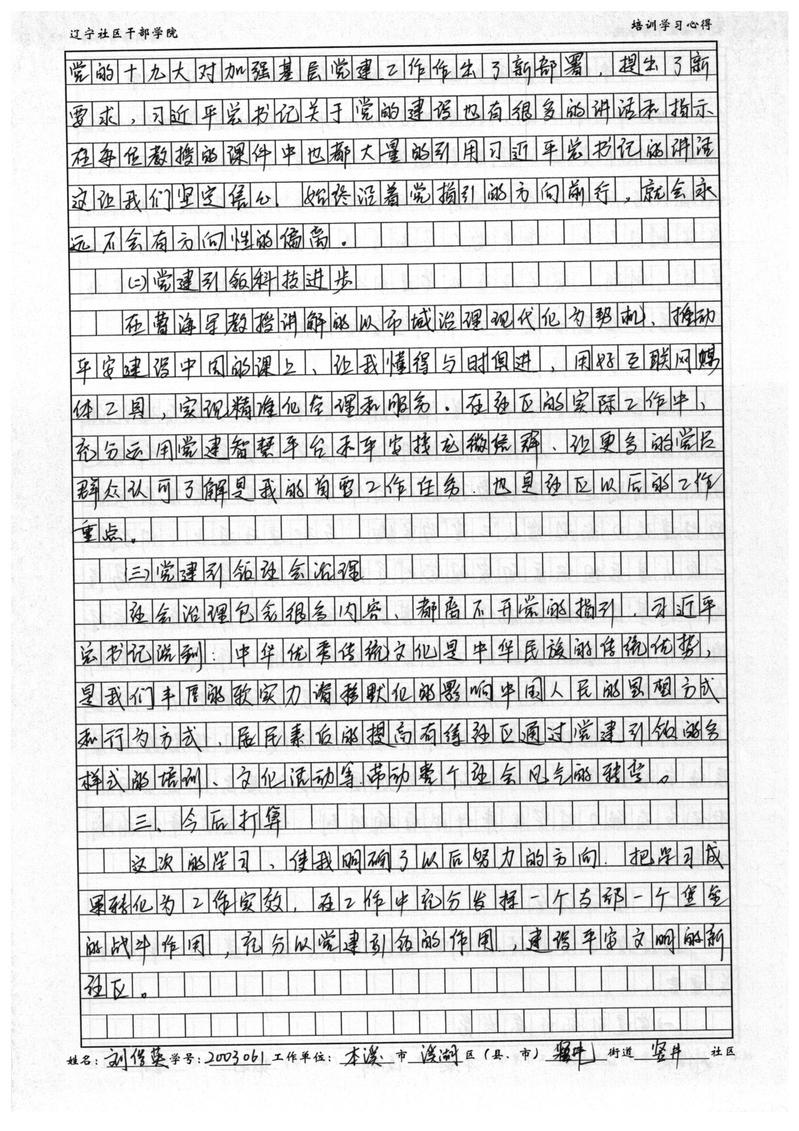 辽宁社区干部学院 培训学习心得
党的十九大对加强基层党建工作作出了新部署，提出了新
要求，习近平总书记关于党的建设也有很多的讲话和指示
在每位教授的课件中也都大量的引用习近平总书记的讲话
这让我们坚定信心，始终沿着党指引的方向前行，就会永
远不会有方向性的偏离。
(二)党建引领科技进步
在曹海军教授讲解的以市域治理现代化为契机、推动
平安建设中用的课上、让我懂得与时俱进，用好互联网媒
体工具，实现精准化合理和服务。在社区的实际工作中，
充分运用党建智慧平台和平安接龙微信群、让更多的党员
群众认可了解是我的首要工作任务.也是社区以后的工作
重点。
三)党建引领社会治理
社会治理包含很多内容、都离不开党的指引，习近平
总书记说到：中华优秀传统文化是中华民族的传统优势，
是我们丰厚的软实力潜移默化的影响中国人民的思想方式
和行为方式，居民素质的提高有待社区通过党建引领的各
样式的培训、文化活动等.带动整个社会风气的转变。
三、今后打算
这次的学习、使我明确了以后努力的方向.把学习成
果转化为工作实效，在工作中充分发挥一个支部一个堡垒
的战斗作用，充分以党建引领的作用，建设平安文明的新
社区。
姓名：刘 学号：2003061 工作单位：本溪市 溪湖区（县、市）竖井街道 竖井社区